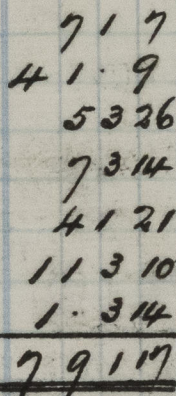 7 1 7
4 1 · 9
5 3 26
7 3 14
4 1 21
1 1 3 10
1 · 3 14
7 9 1 17